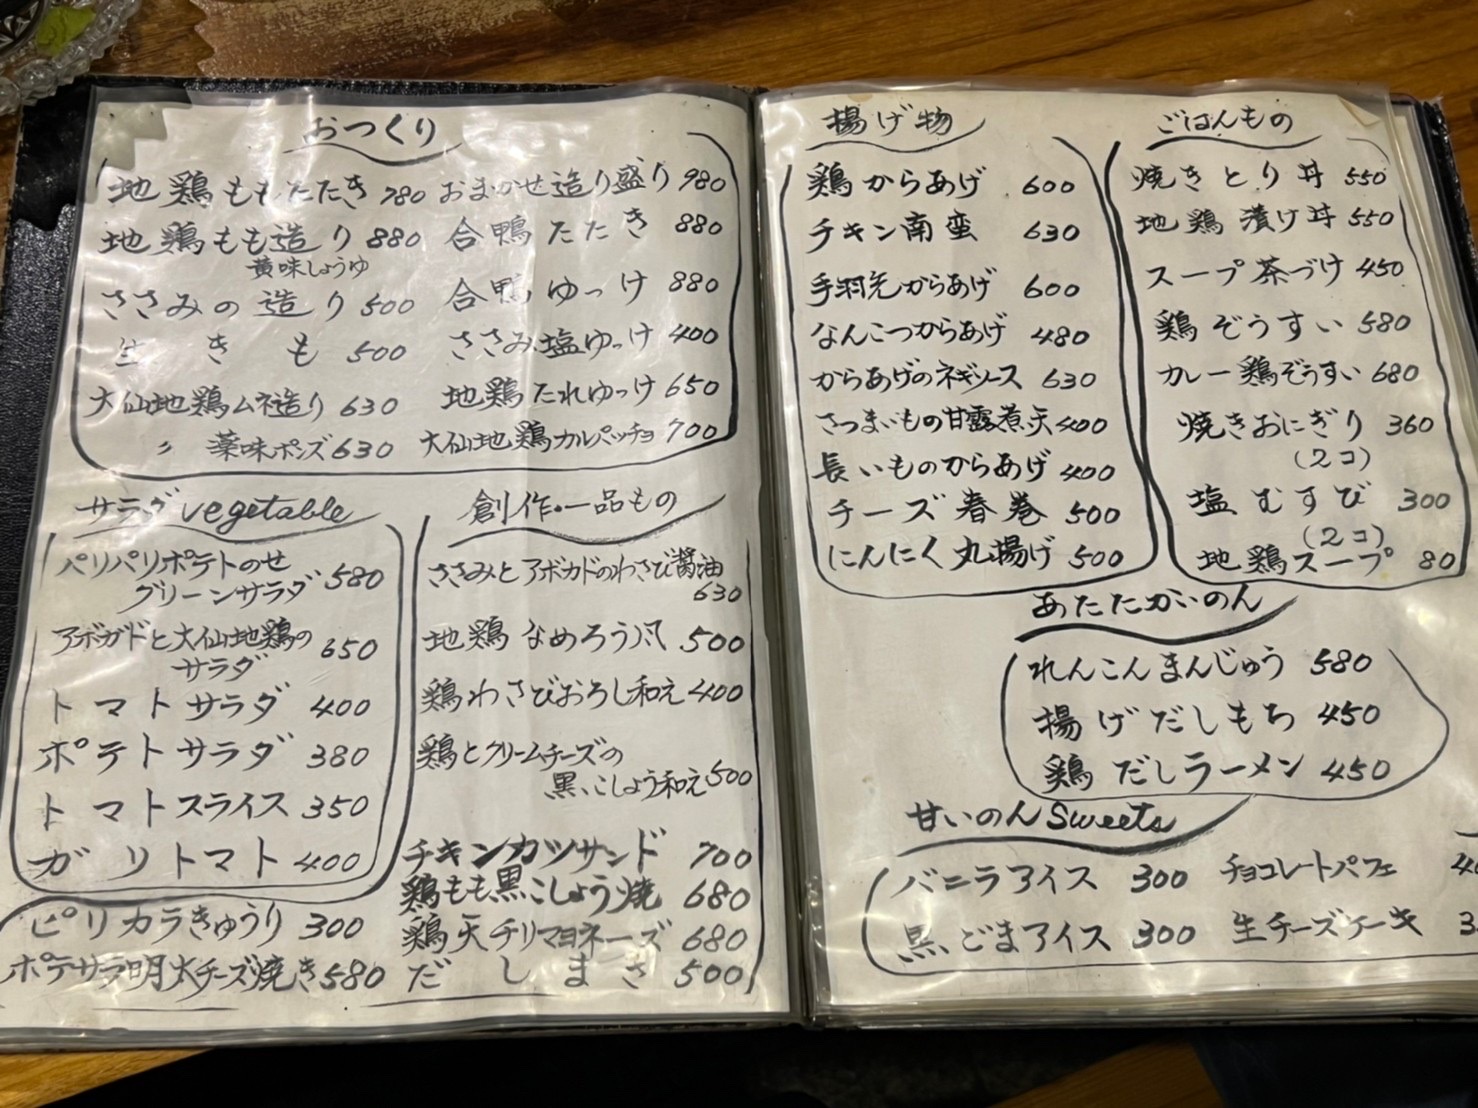 おつくり
地鶏ももたたき 780
地鶏もも造り 880
黄味しょうゆ
ささみの造り 500
生きも 500
大仙地鶏ムネ造り 630
〃 薬味ポンズ 630
おまかせ造り盛り 980
合鴨たたき 880
合鴨ゆっけ 880
ささみ塩ゆっけ 400
地鶏たれゆっけ 650
大仙地鶏カルパッチョ 700
サラダ vegetable
パリパリポテトのせ
グリーンサラダ 580
アボガドと大仙地鶏の
サラダ 650
トマトサラダ 400
ポテトサラダ 380
トマトスライス 350
ガリトマト 400
ピリカラきゅうり 300
ポテサラ明太チーズ焼き 580
創作・一品もの
ささみとアボカドのわさび醤油
630
地鶏なめろう風 500
鶏わさびおろし和え 400
鶏とクリームチーズの
黒こしょう和え 500
チキンカツサンド 700
鶏もも黒こしょう焼 680
鶏天チリマヨネーズ 680
だしまき 500
揚げ物
鶏からあげ 600
チキン南蛮 630
手羽先からあげ 600
なんこつからあげ 480
からあげのネギソース 630
さつまいもの甘露煮天 400
長いものからあげ 400
チーズ春巻 500
にんにく丸揚げ 500
ごはんもの
焼きとり丼 550
地鶏漬け丼 550
スープ茶づけ 450
鶏ぞうすい 580
カレー鶏ぞうすい 680
焼きおにぎり 360
(2コ)
塩むすび 300
(2コ)
地鶏スープ 80
あたたかいのん
れんこんまんじゅう 580
揚げだしもち 450
鶏だしラーメン 450
甘いのん Sweets
バニラアイス 300
黒ごまアイス 300
チョコレートパフェ
生チーズケーキ